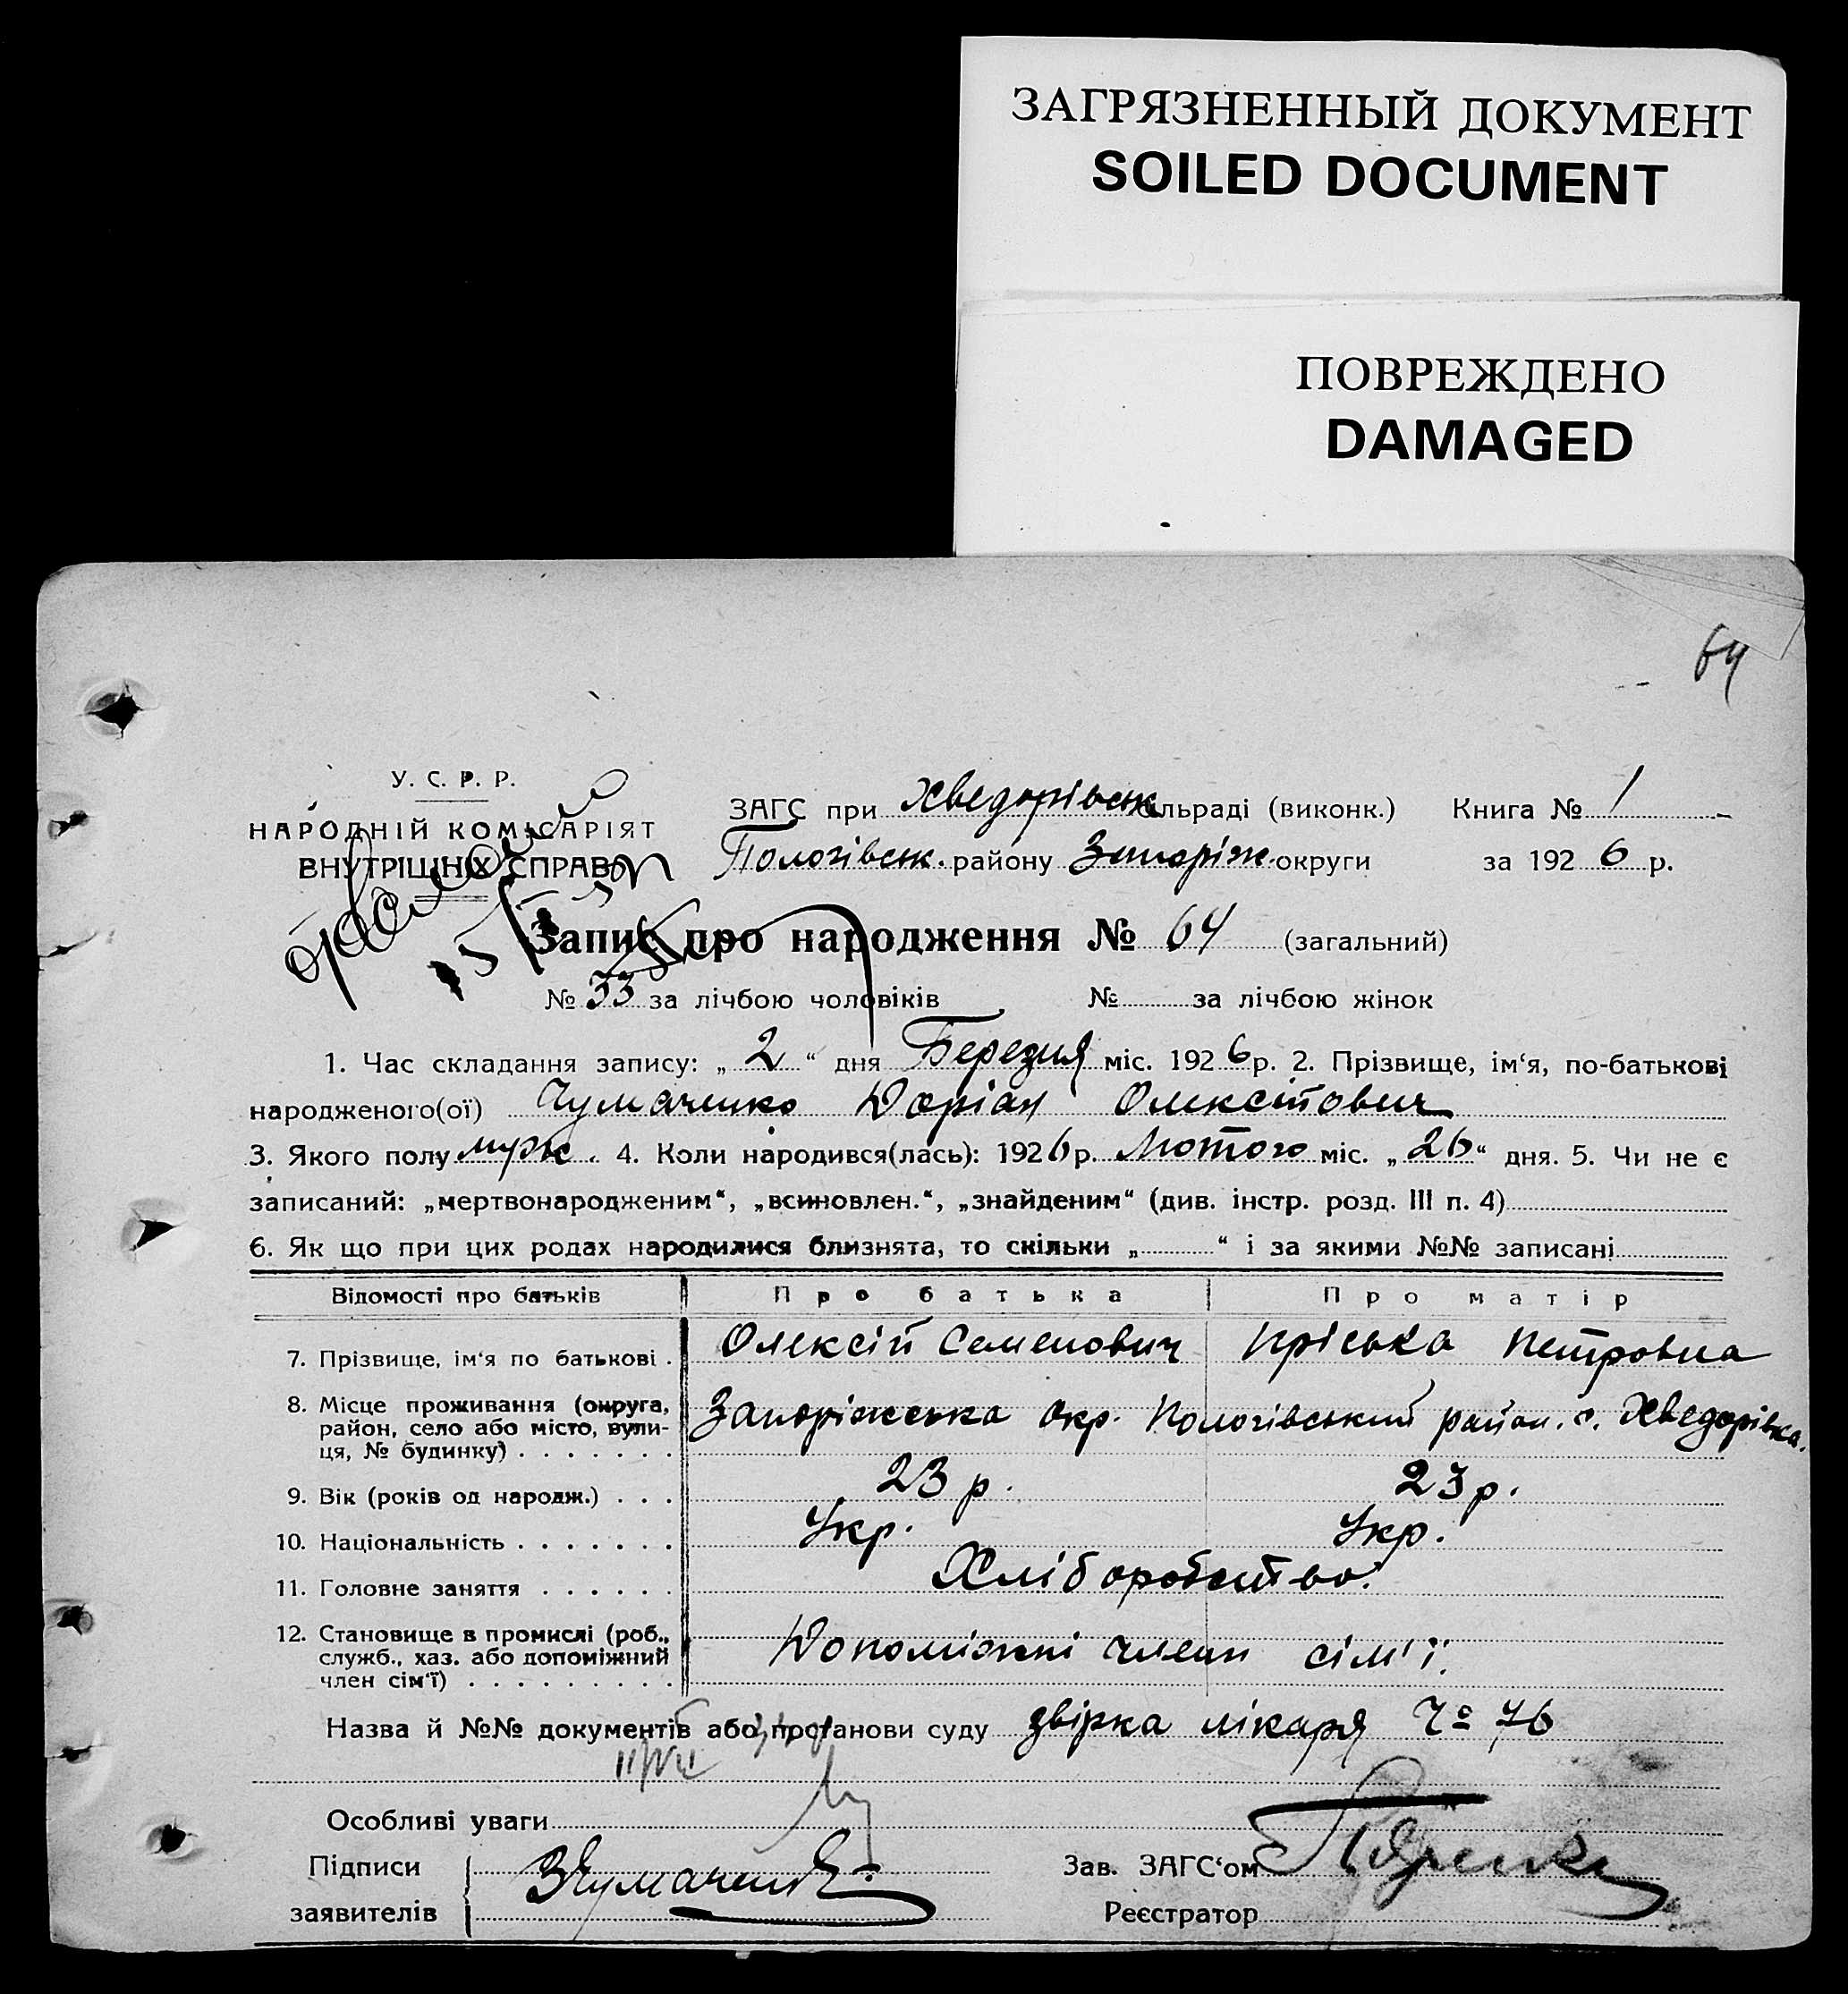 ЗАГРЯЗНЕННЫЙ ДОКУМЕНТ
SOILED DOCUMENT
ПОВРЕЖДЕНО
DAMAGED
64
У. С. Р. Р.
НАРОДНІЙ КОМІСАРІЯТ
ВНУТРІШНІХ СПРАВ
ЗАГС при Хведорівськ сільраді (виконк.) Книга № 1
Пологівськ. району Запоріж. округи за 1926 р.
Запис про народження № 64 (загальний)
№ 33 за лічбою чоловіків № за лічбою жінок
1. Час складання запису: „ 2 “ дня Березня міс. 1926 р. 2. Прізвище, ім‘я, по-батькові
народженого(ої) Чумаченко Доріан Олексійович
3. Якого полу муж. 4. Коли народився(лась): 1926 р. Лютого міс. „ 26 “ дня. 5. Чи не є
записаний: „мертвонародженим“, „всиновлен.“, „знайденим“ (див. інстр. розд. III п. 4)
6. Як що при цих родах народилися близнята, то скільки „ “ і за якими №№ записані
Відомості про батьків Про батька Про матір
7. Прізвище, ім‘я по батькові . Олексій Семенович Пріська Петровна
8. Місце проживання (округа, район, село або місто, вули-
ця, № будинку) . . . . . . . Запоріжська окр. Пологівський район. с. Хведорівка.
9. Вік (років од народж.) . . . 23 р. 23 р.
10. Національність . . . . . . . Укр. Укр.
11. Головне заняття . . . . . . Хліборобство.
12. Становище в промислі (роб., служб., хаз. або допоміжний
член сім‘ї) . . . . . . . . . Допоміжні члени сім'ї.
Назва й №№ документів або постанови суду звірка лікаря № 76
Особливі уваги
Підписи
заявителів
Чумаченко
Зав. ЗАГС‘ом
Реєстратор